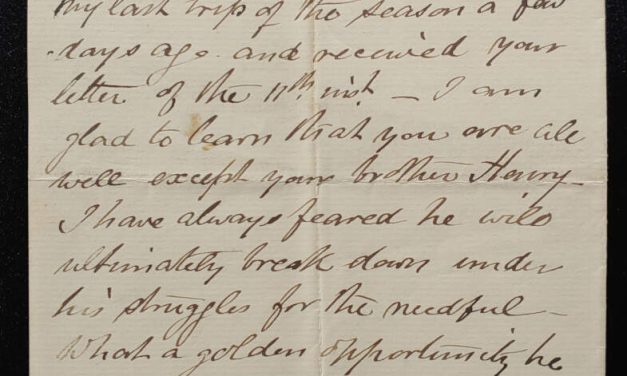 my last trip of the season a few
days ago and received your
letter of the 11th inst — I am
glad to learn that you are all
well except your brother Henry —
I have always feared he will
ultimately break down under
his struggles for the needful —
What a golden opportunity he